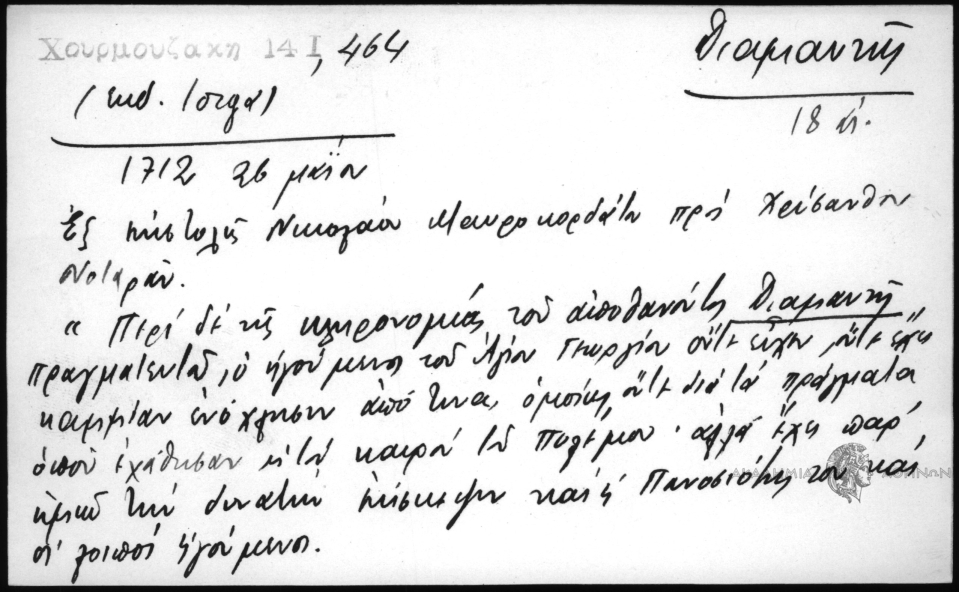 Χουρμουζάκη 14 I, 464
Διαμαντής
(εκδ. Ιοργα)
18 αι.
1712 26 μαΐου
Ἐξ ἐπιστολῆς Νικολάου Μαυροκορδάτου πρός Χρύσανθον
Νοταρᾶν.
« Περί δέ τῆς κληρονομίας τοῦ ἀποθανόντος Διαμαντῆ
πραγματευτοῦ, ὁ ἡγούμενος τοῦ Ἁγίου Γεωργίου οὔτε εἶχεν, οὔτε ἔχει
καμμίαν ἐνόχλησιν ἀπό τινα, ὁμοίως οὔτε διά τά πράγματα
ὁποῦ ἐχάθησαν εἰς τόν καιρόν τοῦ πολέμου· ἀλλά ἔχει παρ'
ἡμῶν τήν δυνατήν ἐπίσκεψιν καί ἡ Πανοσιότης του καί
οἱ λοιποί ἡγούμενοι.
ΑΚΑΔΗΜΙΑ ΑΘΗΝΩΝ